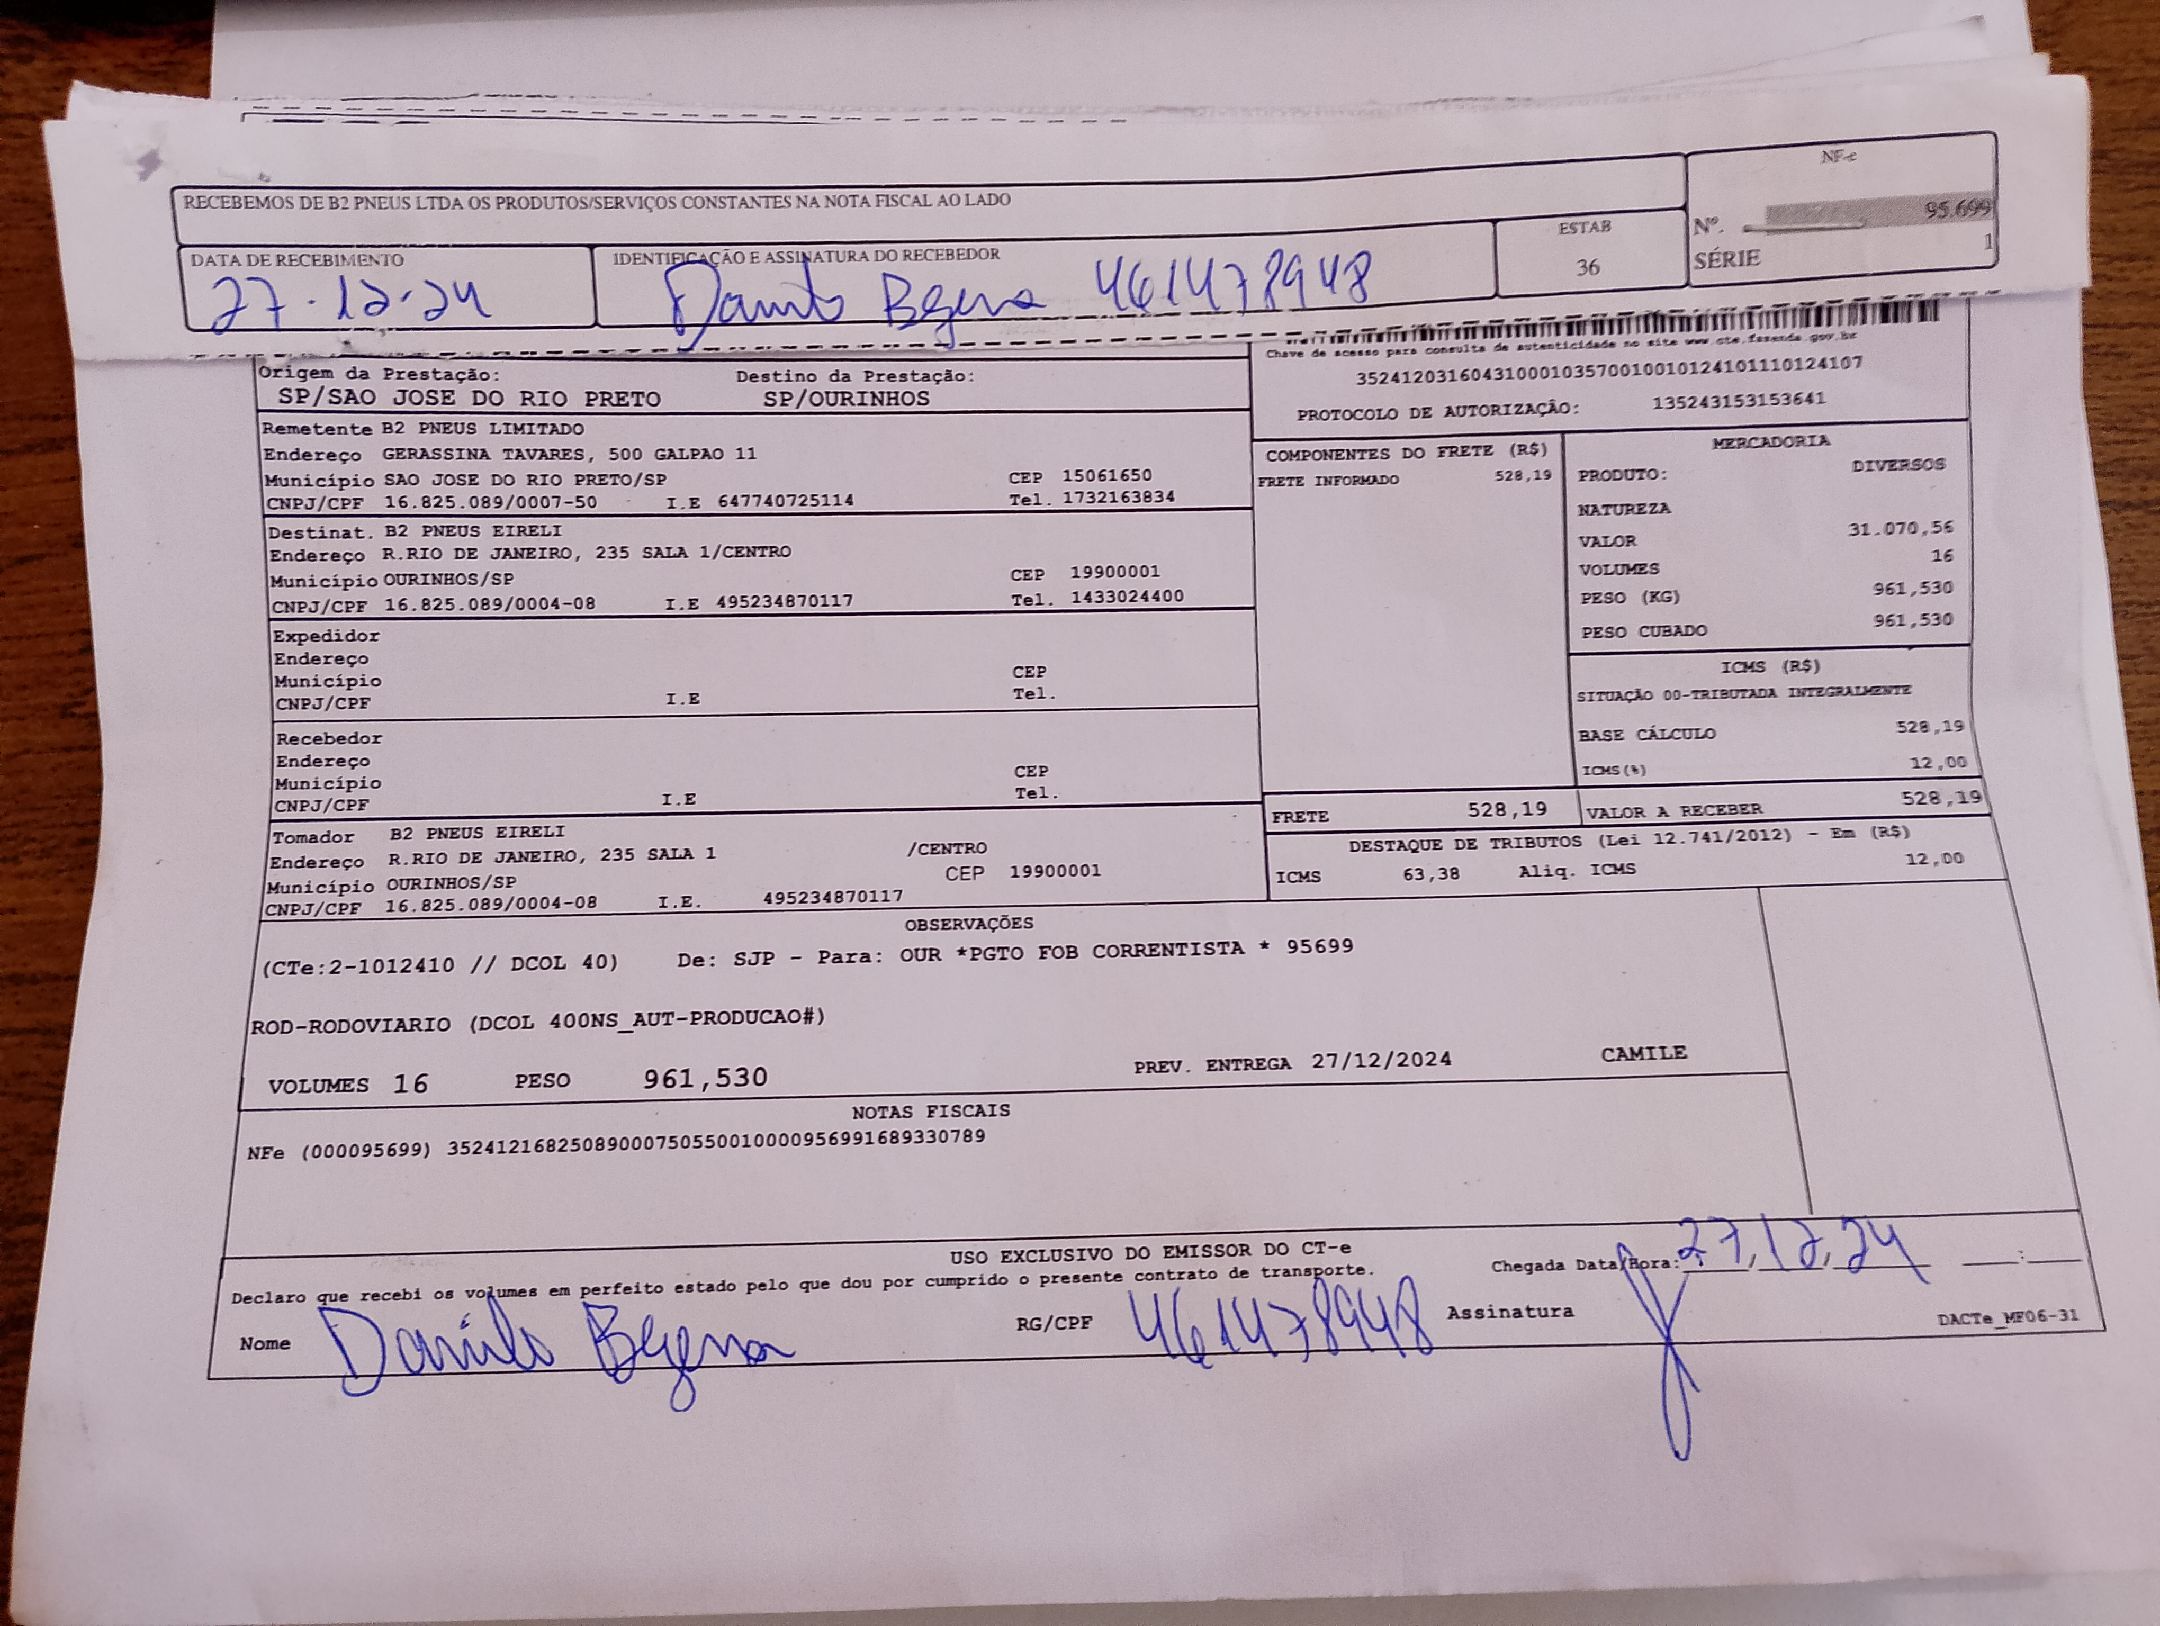 RECEBEMOS DE B2 PNEUS LTDA OS PRODUTOS/SERVIÇOS CONSTANTES NA NOTA FISCAL AO LADO
NF-e
Nº. 95.699
SÉRIE 1
DATA DE RECEBIMENTO
27.12.24
IDENTIFICAÇÃO E ASSINATURA DO RECEBEDOR
Danilo 461478948
ESTAB
36
Chave de acesso para consulta de autenticidade no site www.cte.fazenda.gov.br
35241203160431000103570010010124101110124107
PROTOCOLO DE AUTORIZAÇÃO: 135243153153641
Origem da Prestação: Destino da Prestação:
SP/SAO JOSE DO RIO PRETO SP/OURINHOS
Remetente B2 PNEUS LIMITADO
Endereço GERASSINA TAVARES, 500 GALPAO 11
Município SAO JOSE DO RIO PRETO/SP CEP 15061650
CNPJ/CPF 16.825.089/0007-50 I.E 647740725114 Tel. 1732163834
Destinat. B2 PNEUS EIRELI
Endereço R.RIO DE JANEIRO, 235 SALA 1/CENTRO
Município OURINHOS/SP CEP 19900001
CNPJ/CPF 16.825.089/0004-08 I.E 495234870117 Tel. 1433024400
Expedidor
Endereço
Município CEP
CNPJ/CPF I.E Tel.
Recebedor
Endereço
Município CEP
CNPJ/CPF I.E Tel.
Tomador B2 PNEUS EIRELI
Endereço R.RIO DE JANEIRO, 235 SALA 1 /CENTRO
Município OURINHOS/SP CEP 19900001
CNPJ/CPF 16.825.089/0004-08 I.E. 495234870117
COMPONENTES DO FRETE (R$)
FRETE INFORMADO 528,19
MERCADORIA
PRODUTO: DIVERSOS
NATUREZA
VALOR 31.070,56
VOLUMES 16
PESO (KG) 961,530
PESO CUBADO 961,530
ICMS (R$)
SITUAÇÃO 00-TRIBUTADA INTEGRALMENTE
BASE CÁLCULO 528,19
ICMS(%) 12,00
FRETE 528,19 VALOR A RECEBER 528,19
DESTAQUE DE TRIBUTOS (Lei 12.741/2012) - Em (R$)
ICMS 63,38 Aliq. ICMS 12,00
OBSERVAÇÕES
(CTe:2-1012410 // DCOL 40) De: SJP - Para: OUR *PGTO FOB CORRENTISTA * 95699
ROD-RODOVIARIO (DCOL 400NS_AUT-PRODUCAO#)
VOLUMES 16 PESO 961,530 PREV. ENTREGA 27/12/2024 CAMILE
NOTAS FISCAIS
NFe (000095699) 35241216825089000750550010000956991689330789
USO EXCLUSIVO DO EMISSOR DO CT-e
Declaro que recebi os volumes em perfeito estado pelo que dou por cumprido o presente contrato de transporte.
Chegada Data/Hora: 27,12,24 :
Nome Danilo RG/CPF 461478948 Assinatura
DACTe_MF06-31